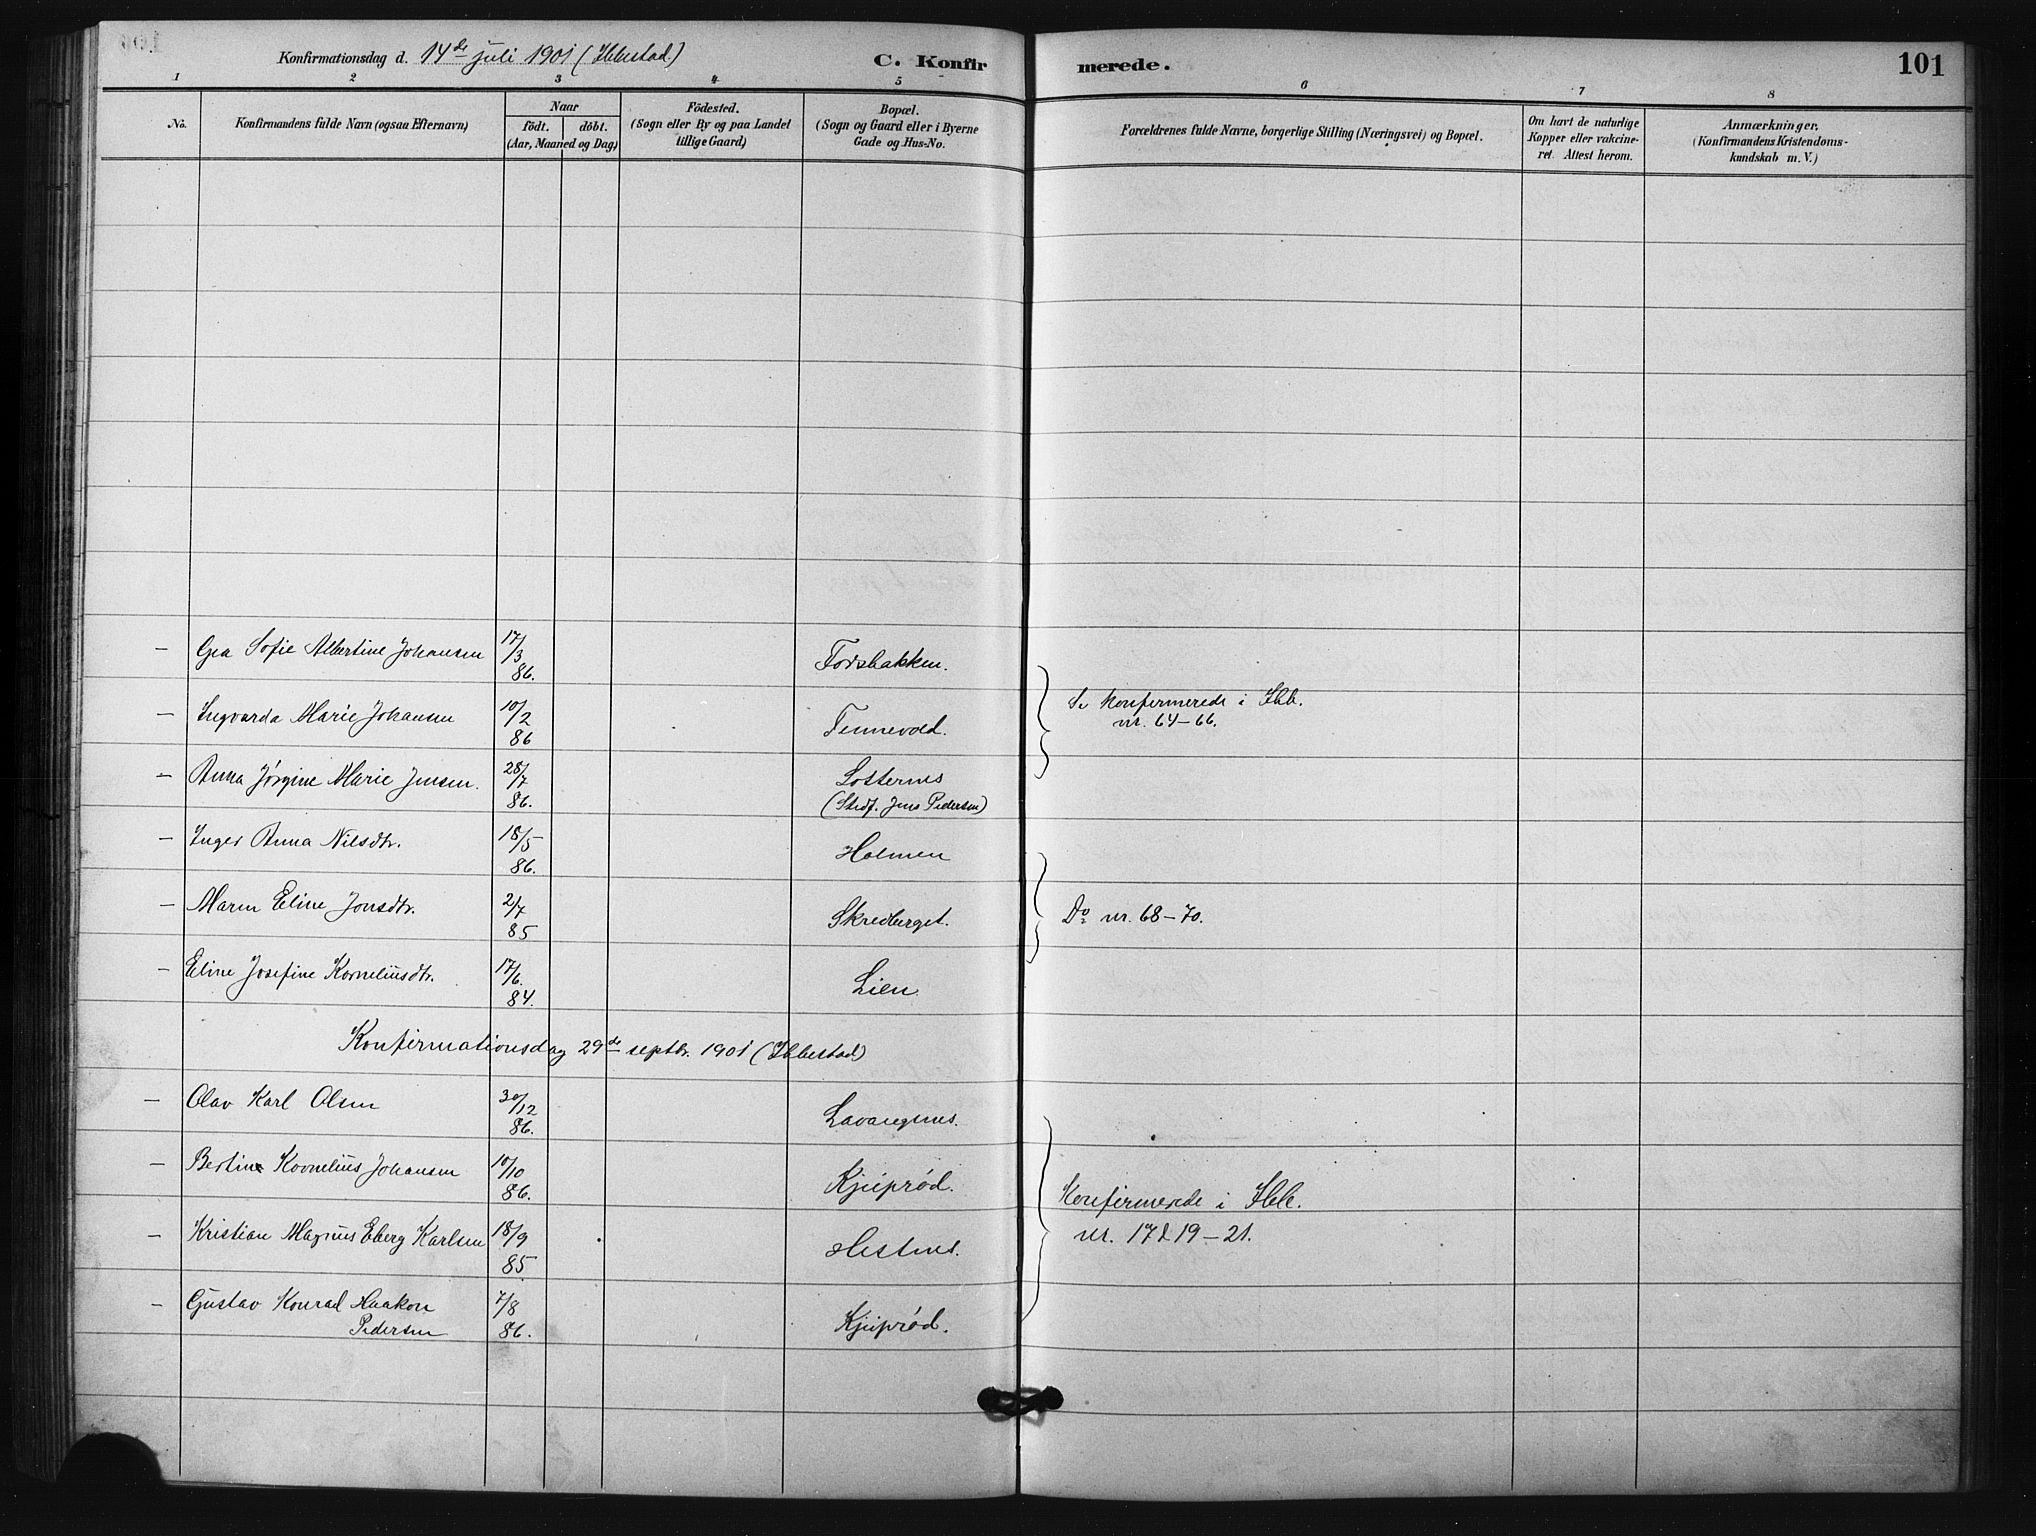 Konfirmationsdag d. 14de juli 1901 (Ibbestad)
C. Konfirmerede.
101
1 2 3 4 5 6 7 8
No.
Konfirmandens fulde Navn (ogsaa Efternavn)
Naar
födt. döbt.
(Aar, Maaned og Dag)
Födested.
(Sogn eller By og paa Landet
tillige Gaard)
Bopæl.
(Sogn og Gaard eller i Byerne
Gade og Hus-No.
Forœldrenes fulde Navne, borgerlige Stilling (Næringsvei) og Bopœl.
Om havt de naturlige
Kopper eller vakcine-
ret. Attest herom.
Anmærkninger,
(Konfirmandens Kristendoms-
kundskab m. V.)
— Gea Sofie Albertine Johansen 17/3 86. Forsbakken.
— Ingvarda Marie Johansen 10/2 86 Tennevold.
Se konfermerede i Ibb.
nr. 64–66.
— Anna Jørgine Marie Jensen. 28/7 86. Lotternes
(Stedf. Jens Pedersen)
— Inger Anna Nilsdtr. 18/5 86. Holmen
— Maren Eline Jonsdtr. 2/7 85 Skredberget.
Do nr. 68–70.
— Eline Josefine Korneliusdtr. 17/6. 84. Lien
Konfirmationsdag 29de septbr. 1901 (Ibbestad)
— Olav Karl Olsen 30/12 86. Lavangsnes.
— Bertin Kornelius Johansen 10/10 86. Kjeiprød.
Konfirmerede i Ibb.
nr. 17 & 19–21.
— Kristian Magnus Eberg Karlsen 18/9 85 Hestnes.
— Gustav Konrad Haakon
Pedersen 7/8 86. Kjeiprød.